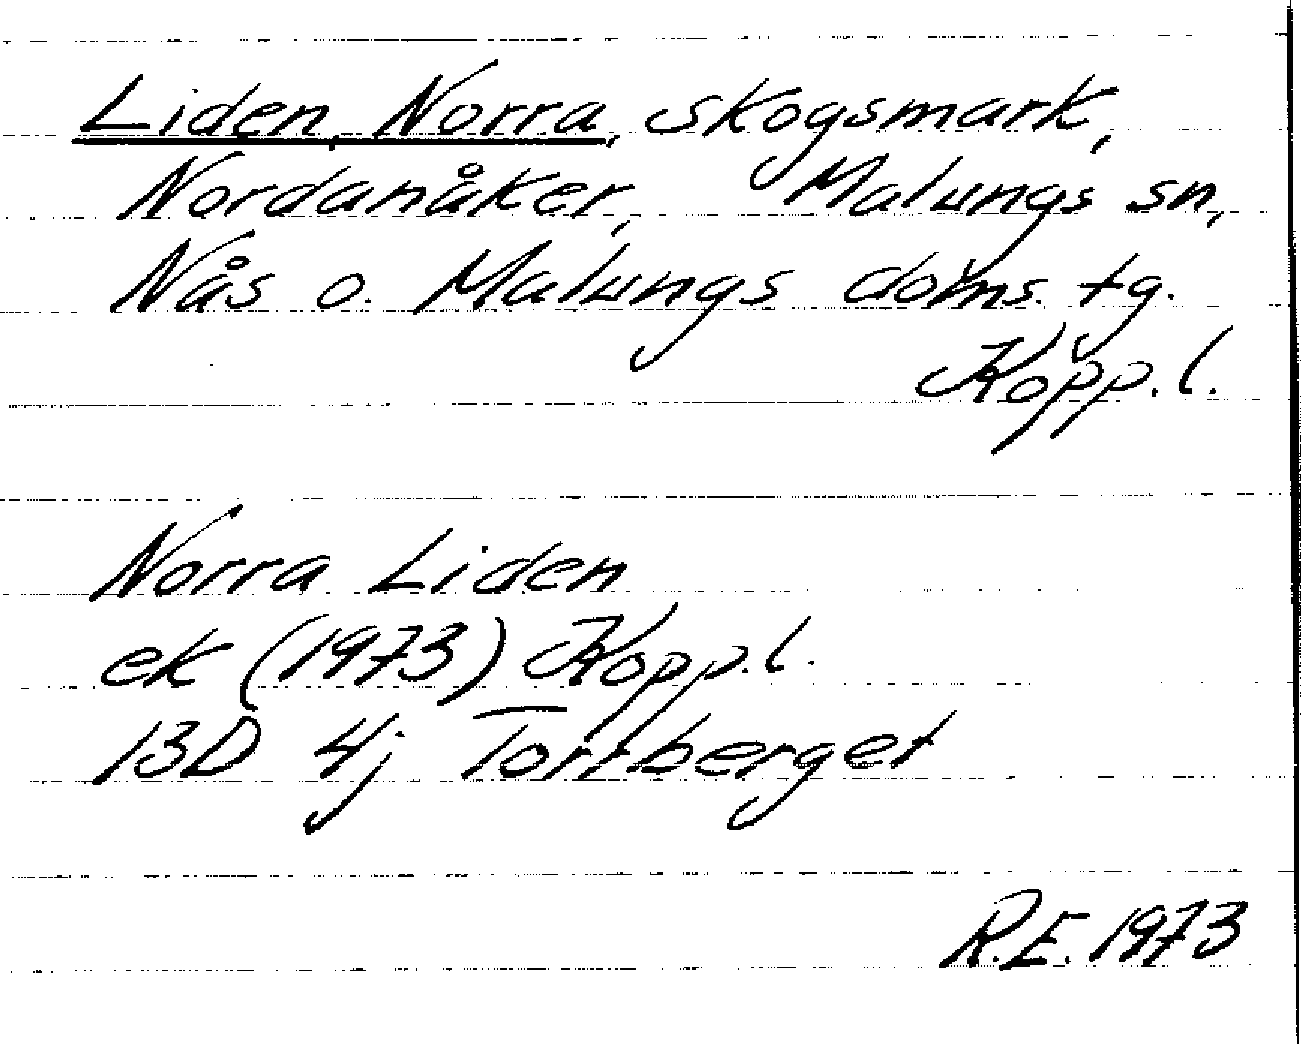 Liden, Norra, skogsmark,
Nordanåker, Malungs sn,
Nås o. Malungs doms. tg.
Kopp.l.
Norra Liden
ek (1973) Kopp.l.
13D 4j Tortberget
R.E. 1973